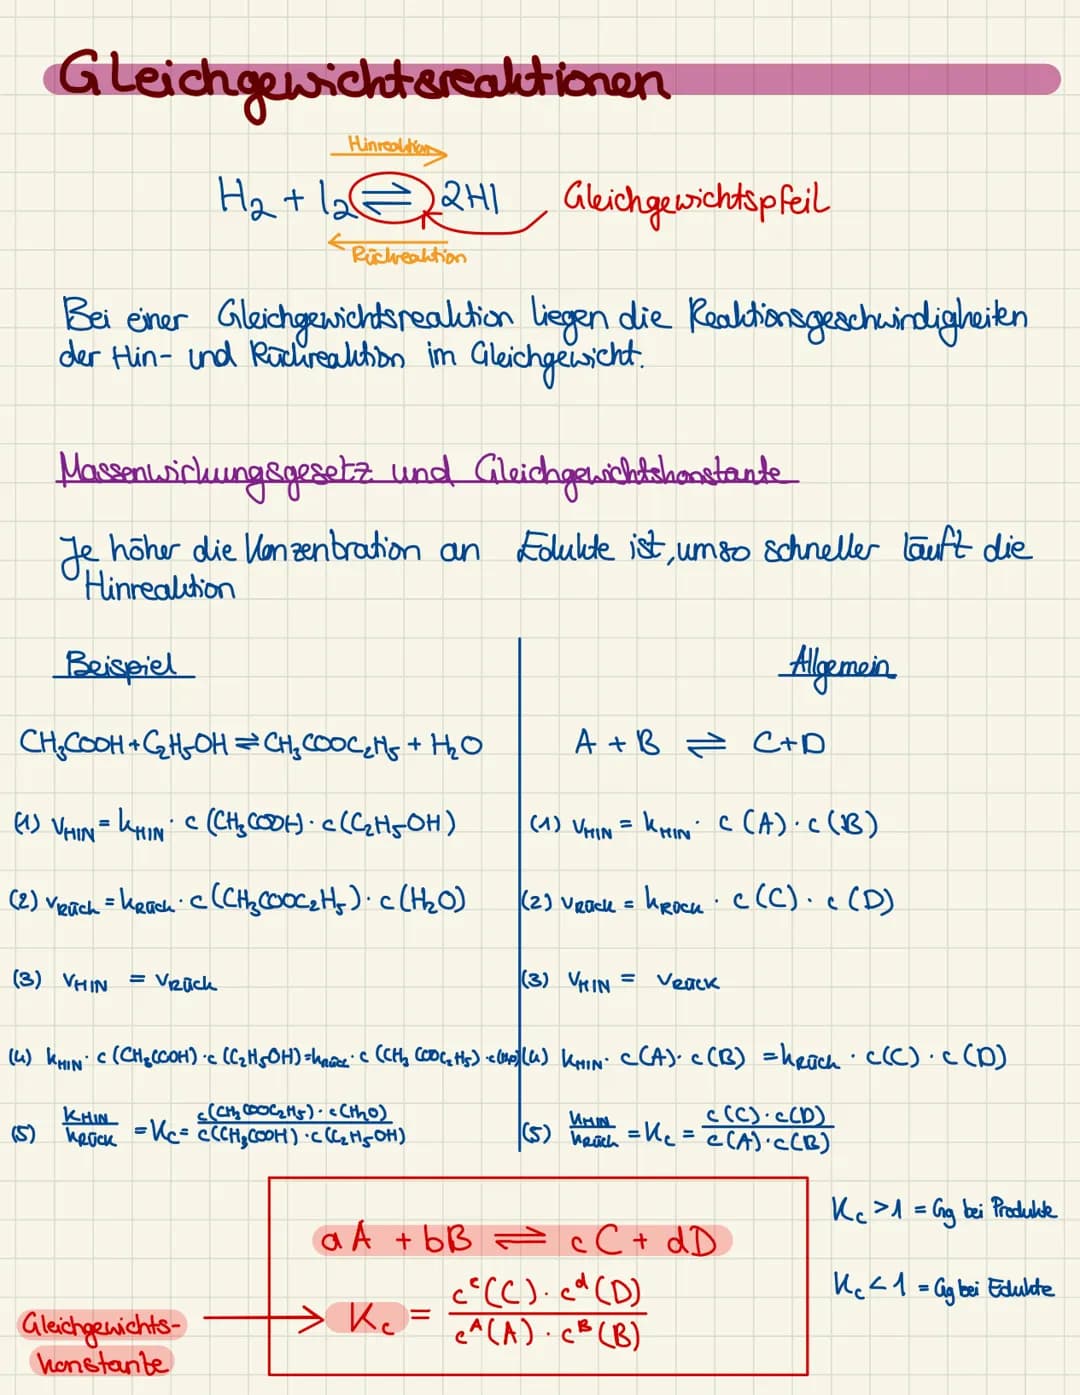 Gleichgewichtsreaktionen
Hinreaktion
H₂ + I₂ ⇌ 2HI Gleichgewichtspfeil
Rückreaktion
Bei einer Gleichgewichtsreaktion liegen die Reaktionsgeschwindigkeiten
der Hin- und Rückreaktion im Gleichgewicht.
Massenwirkungsgesetz und Gleichgewichtskonstante
Je höher die Konzentration an Edukte ist, umso schneller läuft die
Hinreaktion
Beispiel
CH₃COOH + C₂H₅OH ⇌ CH₃COOC₂H₅ + H₂O
(1) v_HIN = k_HIN · c (CH₃COOH) · c (C₂H₅OH)
(2) v_Rück = k_Rück · c (CH₃COOC₂H₅) · c (H₂O)
(3) v_HIN = v_Rück
(4) k_HIN · c (CH₃COOH) · c (C₂H₅OH) = k_Rück · c (CH₃COOC₂H₅) · c (H₂O)
(5) k_HIN / k_Rück = K_c = c(CH₃COOC₂H₅) · c(H₂O) / c(CH₃COOH) · c(C₂H₅OH)
Allgemein
A + B ⇌ C + D
(1) v_HIN = k_HIN · c (A) · c (B)
(2) v_Rück = k_Rück · c (C) · c (D)
(3) v_HIN = v_Rück
(4) k_HIN · c(A) · c(B) = k_Rück · c(C) · c(D)
(5) k_HIN / k_Rück = K_c = c(C) · c(D) / c(A) · c(B)
aA + bB ⇌ cC + dD
K_c = c^c(C) · c^d(D) / c^A(A) · c^B(B)
Gleichgewichts-
konstante
K_c > 1 = Gg bei Produkte
K_c < 1 = Gg bei Edukte